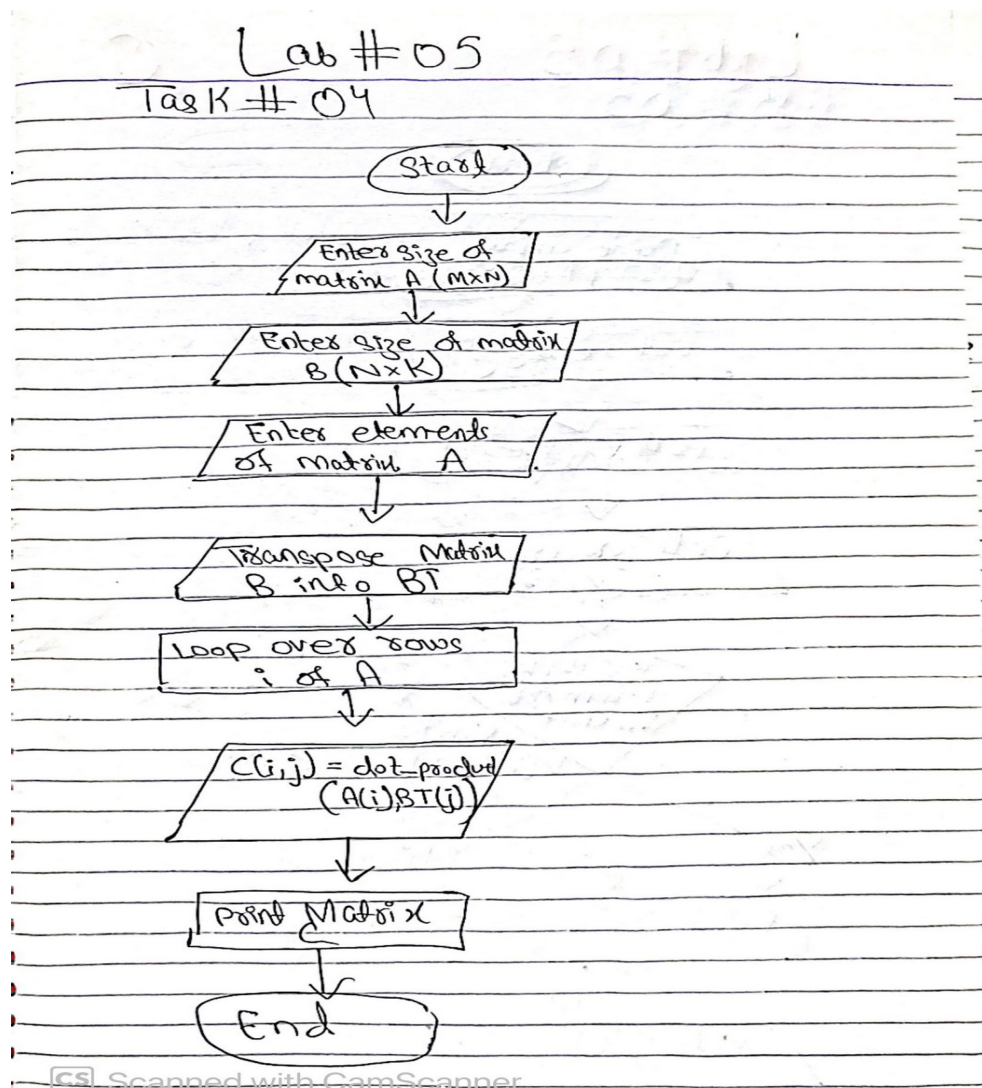 Lab # 05
Task # 04
Start
Enter size of
matrix A (M×N)
Enter size of matrix
B (N×K)
Enter elements
of matrix A
Transpose Matrix
B into BT
Loop over rows
i of A
C(i,j) = dot_product
(A(i),BT(j))
Print Matrix
C
End
CS Scanned with CamScanner